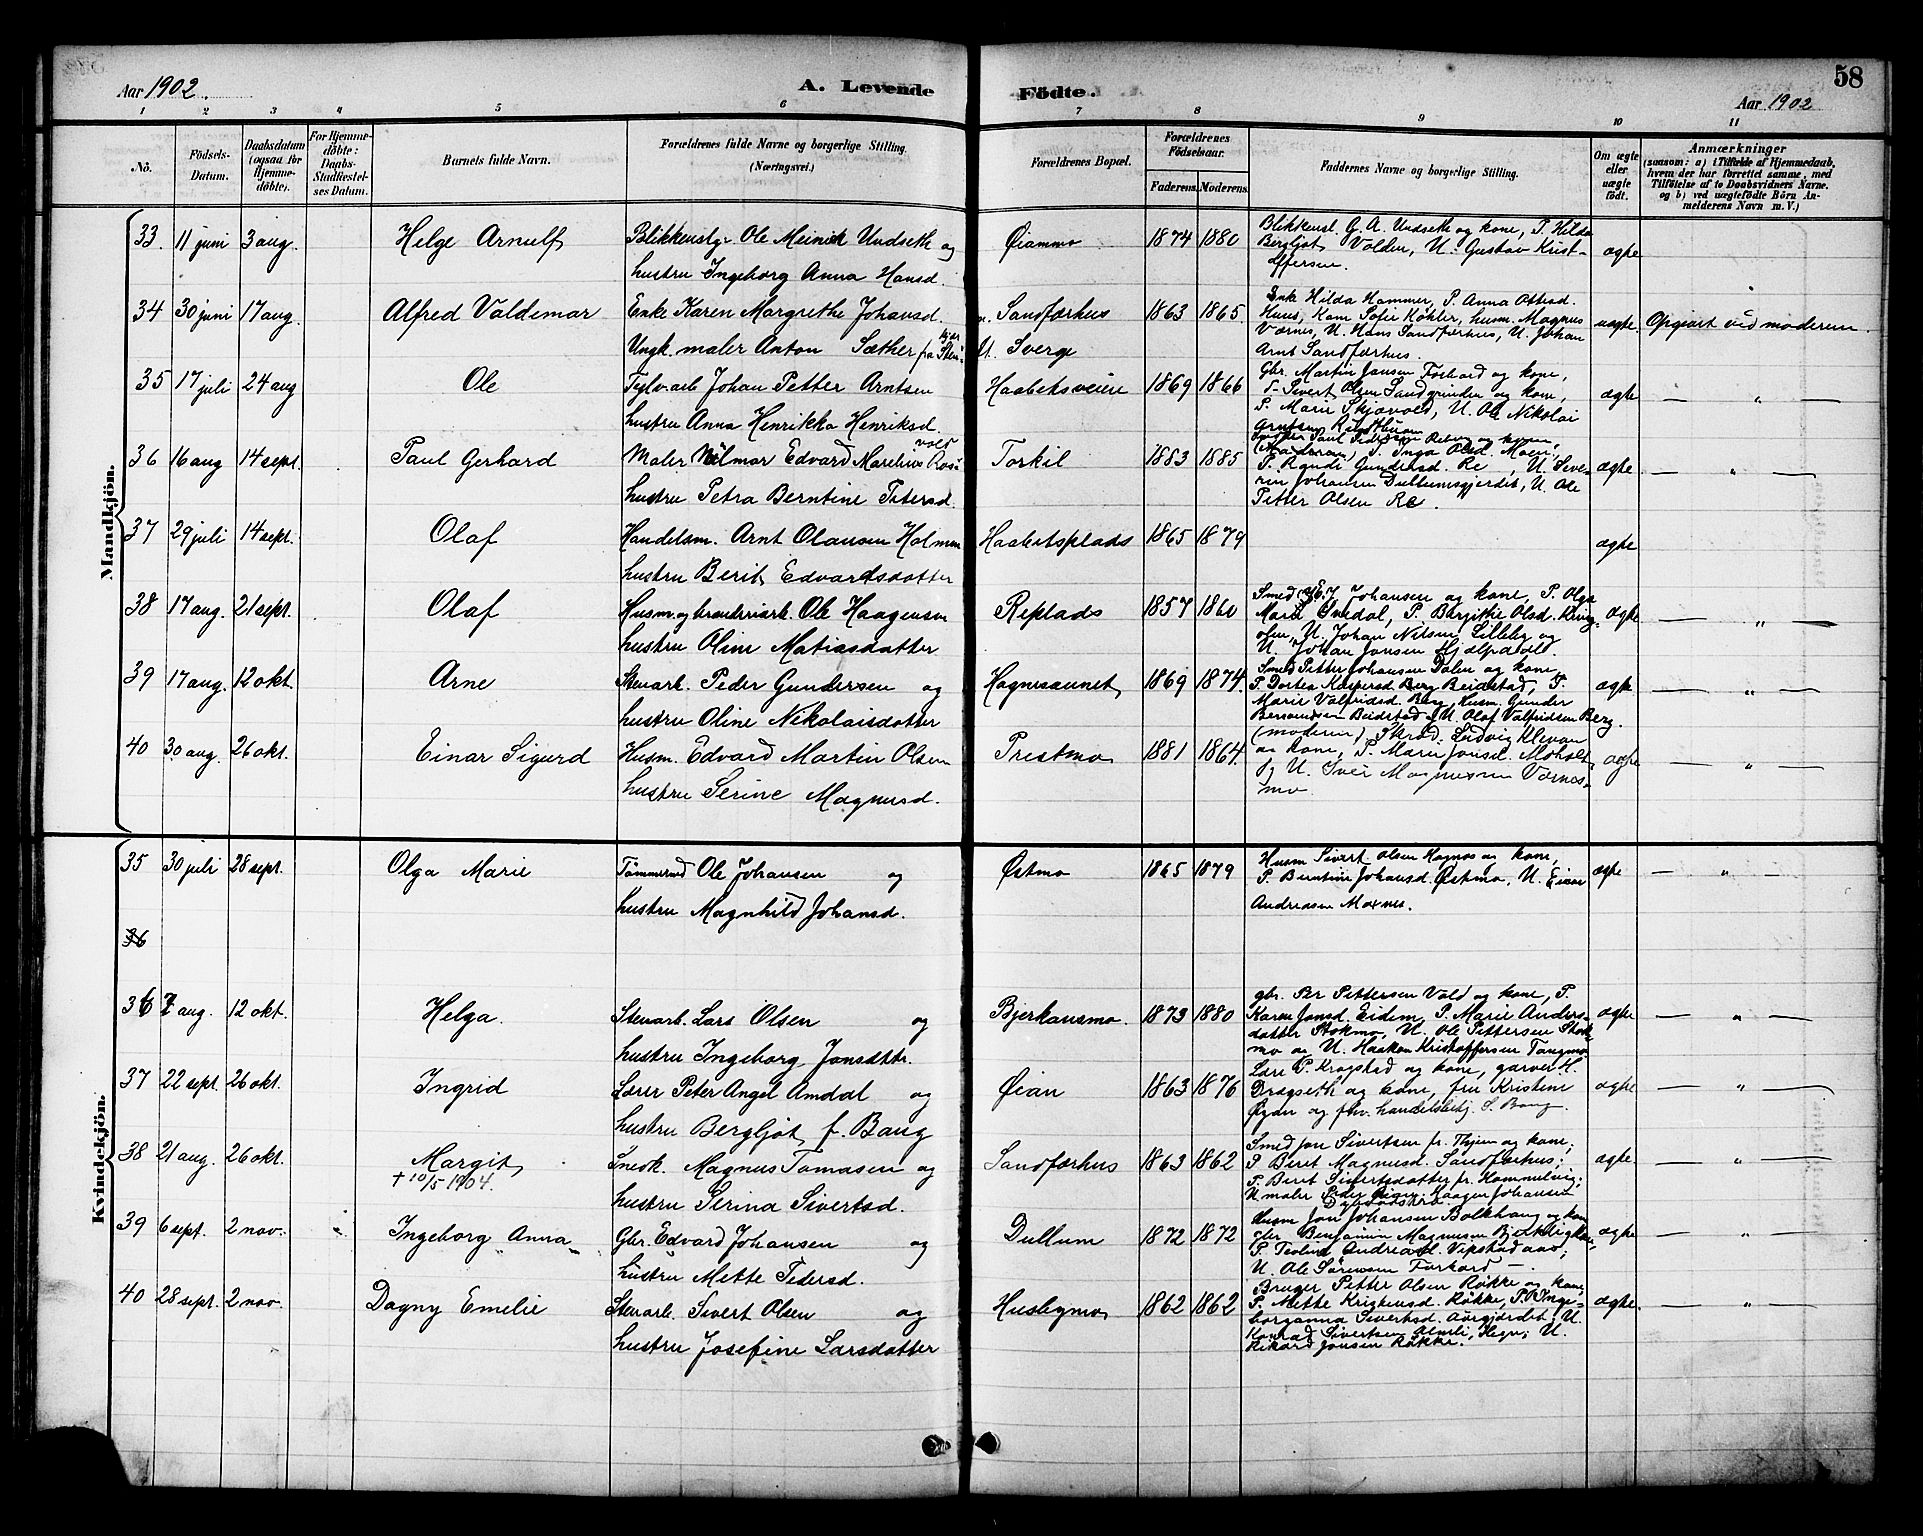 Aar 1902.
A. Levende
Födte.
58
Aar 1902
1 2 3 4 5 6 7 8 9 10 11
No.
Födsels-Datum.
Daabsdatum (ogsaa for Hjemmedöbte).
For Hjemmedöbte: Daabs-Stadfæstelses Datum.
Barnets fulde Navn.
Forældrenes fulde Navne og borgerlige Stilling. (Næringsvei.)
Forældrenes Bopæl.
Forældrenes Födselsaar.
Faderens. Moderens.
Faddernes Navne og borgerlige Stilling.
Om ægte eller uægte født.
Anmærkninger
(saasom: a) i Tilfælde af Hjemmedaab, hvem der har forrettet samme, med Tilföielse af to Daabsvidners Navne. og b) ved uægtefödte Börn Anmelderens Navn m. V.)
Mandkjön.
33. 11 juni 3 aug. Helge Arnulf
Blikkenslgr Ole Meinik Undseth og
hustru Ingeborg Anna Hansd.
Øiammo 1874 1880
Blikkensl. G. A. Undseth og kone, P. Hilda
Bergljot Volden, U. Gustav Krist-
offersen.
ægte
34 30 juni 17 aug. Alfred Valdemar
Enke Karen Margrethe Johansd.
Ungk. maler Anton Sæther fra Sten-
kjær
Sandfærhus
U. Sverge
1863 1865
Enke Hilda Hammer, P. Anna Ottesd.
Huus, Kam Sofie Køhler, husm. Magnus
Værnes, U. Hans Sandfærhus, U. Johan
Arnt Sandfærhus.
uægte Opgivet ved moderen.
35 17 juli 24 aug Ole
Teglv.arb Johan Petter Arntsen
hustru Anna Henrikka Henriksd.
Haabetsveien 1869 1866
Gbr. Martin Jansen Forbord og kone,
Sivert Olsen Sandgrinden og kone,
P. Marie Skjævold, U. Ole Nikolai
Arntsen
ægte — " —
36 16 aug 14 sept. Paul Gerhard
Maler Hilmar Edvard Marelius Ros-
vold
hustru Petra Berntine Petersd.
Torkil 1883 1885
(Moderen), P. Inga Olsd. Moen,
P. Randi Gundersd. Re, U. Seve-
rin Johansen Dullumsgjerdet, U. Ole
Petter Olsen Re.
ægte — " —
37 29 juli 14 sept. Olaf
Handelsm. Arnt Olausen Holmen
hustru Berit Edvardsdatter
Haabetsplads 1865 1879
ægte
38 17 aug. 21 sept. Olaf
Husm. og branderiarb. Ole Haagensen
hustru Oline Matiasdatter
Replads 1857 1860
Smed Johansen og kone, P. Olga
Marie Snedal, P. Bergithe Olsd. Kring-
olen, U. Johan Nilsen Lilleby og
U. Johan Jonsen Hjelpdal.
ægte — " —
39 17 aug. 12 okt. Arne
Stenarb. Peder Gundersen og
hustru Oline Nikolaisdatter
Hognesaunet 1869 1874.
Smed Petter Johansen Dalen og kone,
P. Dortea Kaspersd. Berg Beidstad, P.
Marie Valfridsd. Berg, Husm. Gunder
Berntsen Beidstad, U. Olaf Valfridsen Berg.
ægte — " —
40 30 aug. 26 okt. Einar Sigurd
Husm. Edvard Martin Olsen
hustru Serine Magnusd.
Prestmo 1881 1864.
(moderen), Skræd. Ludvig Klevan
og kone, P. Marie Jonsd. Moholt
og U. Iver Magnusen Værnes-
mo.
ægte — " —
Kvindekjön.
35 30 juli 28 sept. Olga Marie
Tömmermd Ole Johansen og
hustru Magnhild Johansd.
Østmo 1865 1879
Husm Sivert Olsen Kognes og kone,
P. Berntine Johansd. Østmo, U. Einar
Andreasen Moxnes.
ægte — " —
36
36 7 aug. 12 okt. Helga.
Stenarb. Lars Olsen og
hustru Ingeborg Jonsdtr.
Bjerkansmo. 1873 1880
gbr. Per Pettersen Vold og kone, P.
Karen Jonsd. Eidem, P. Marie Anders-
datter Stokmo, U. Ole Pettersen Stok-
mo og U. Haakon Kristoffersen Tangmo
ægte — " —
37 22 sept. 26 okt. Ingrid
Lærer Peter Angel Amdal og
hustru Bergljot f. Bang
Øian 1863 1876
Lære P. Kragstad og kone, garver H.
Dragseth og kone, fru Kristine
Øyan og fhv. handelsbetj. S. Bang.
ægte — " —
38 21 aug. 26 okt. Margit
† 10/5 1904.
Snedk. Magnus Tomasen og
hustru Serina Sivertsd.
Sandfærhus 1863 1862
Smed Jon Sivertsen fr. Thjem og kone;
P Beret Magnusd. Sandfærhus;
P. Beret Sivertsdatter fr. Hommelvig;
U maler Peder Haagen Johansen
ægte — " —
39 6 sept. 2 nov. Ingeborg Anna
Gbr. Edvard Johansen og
hustru Mette Pedersd.
Dullum 1872 1872
Husm Jon Johansen Balkhaug og kone
gbr. Benjamin Magnusen
P. Teoline Andreasd.
U. Ole Sørensen Forbord —.
ægte — " —
40 28 sept. 2 nov. Dagny Emelie
Stenarb. Sivert Olsen og
hustru Josefine Larsdatter
Husbymo 1862 1862
Bruger Petter Olsen Røkke og kone,
P. Mette Røkke, P. Inge-
borganna Sivertsd. Avrgjerdet, U.
Konrad Sivertsen Almli, Hegre; U.
Rikard Jonsen Røkke.
ægte. — " —